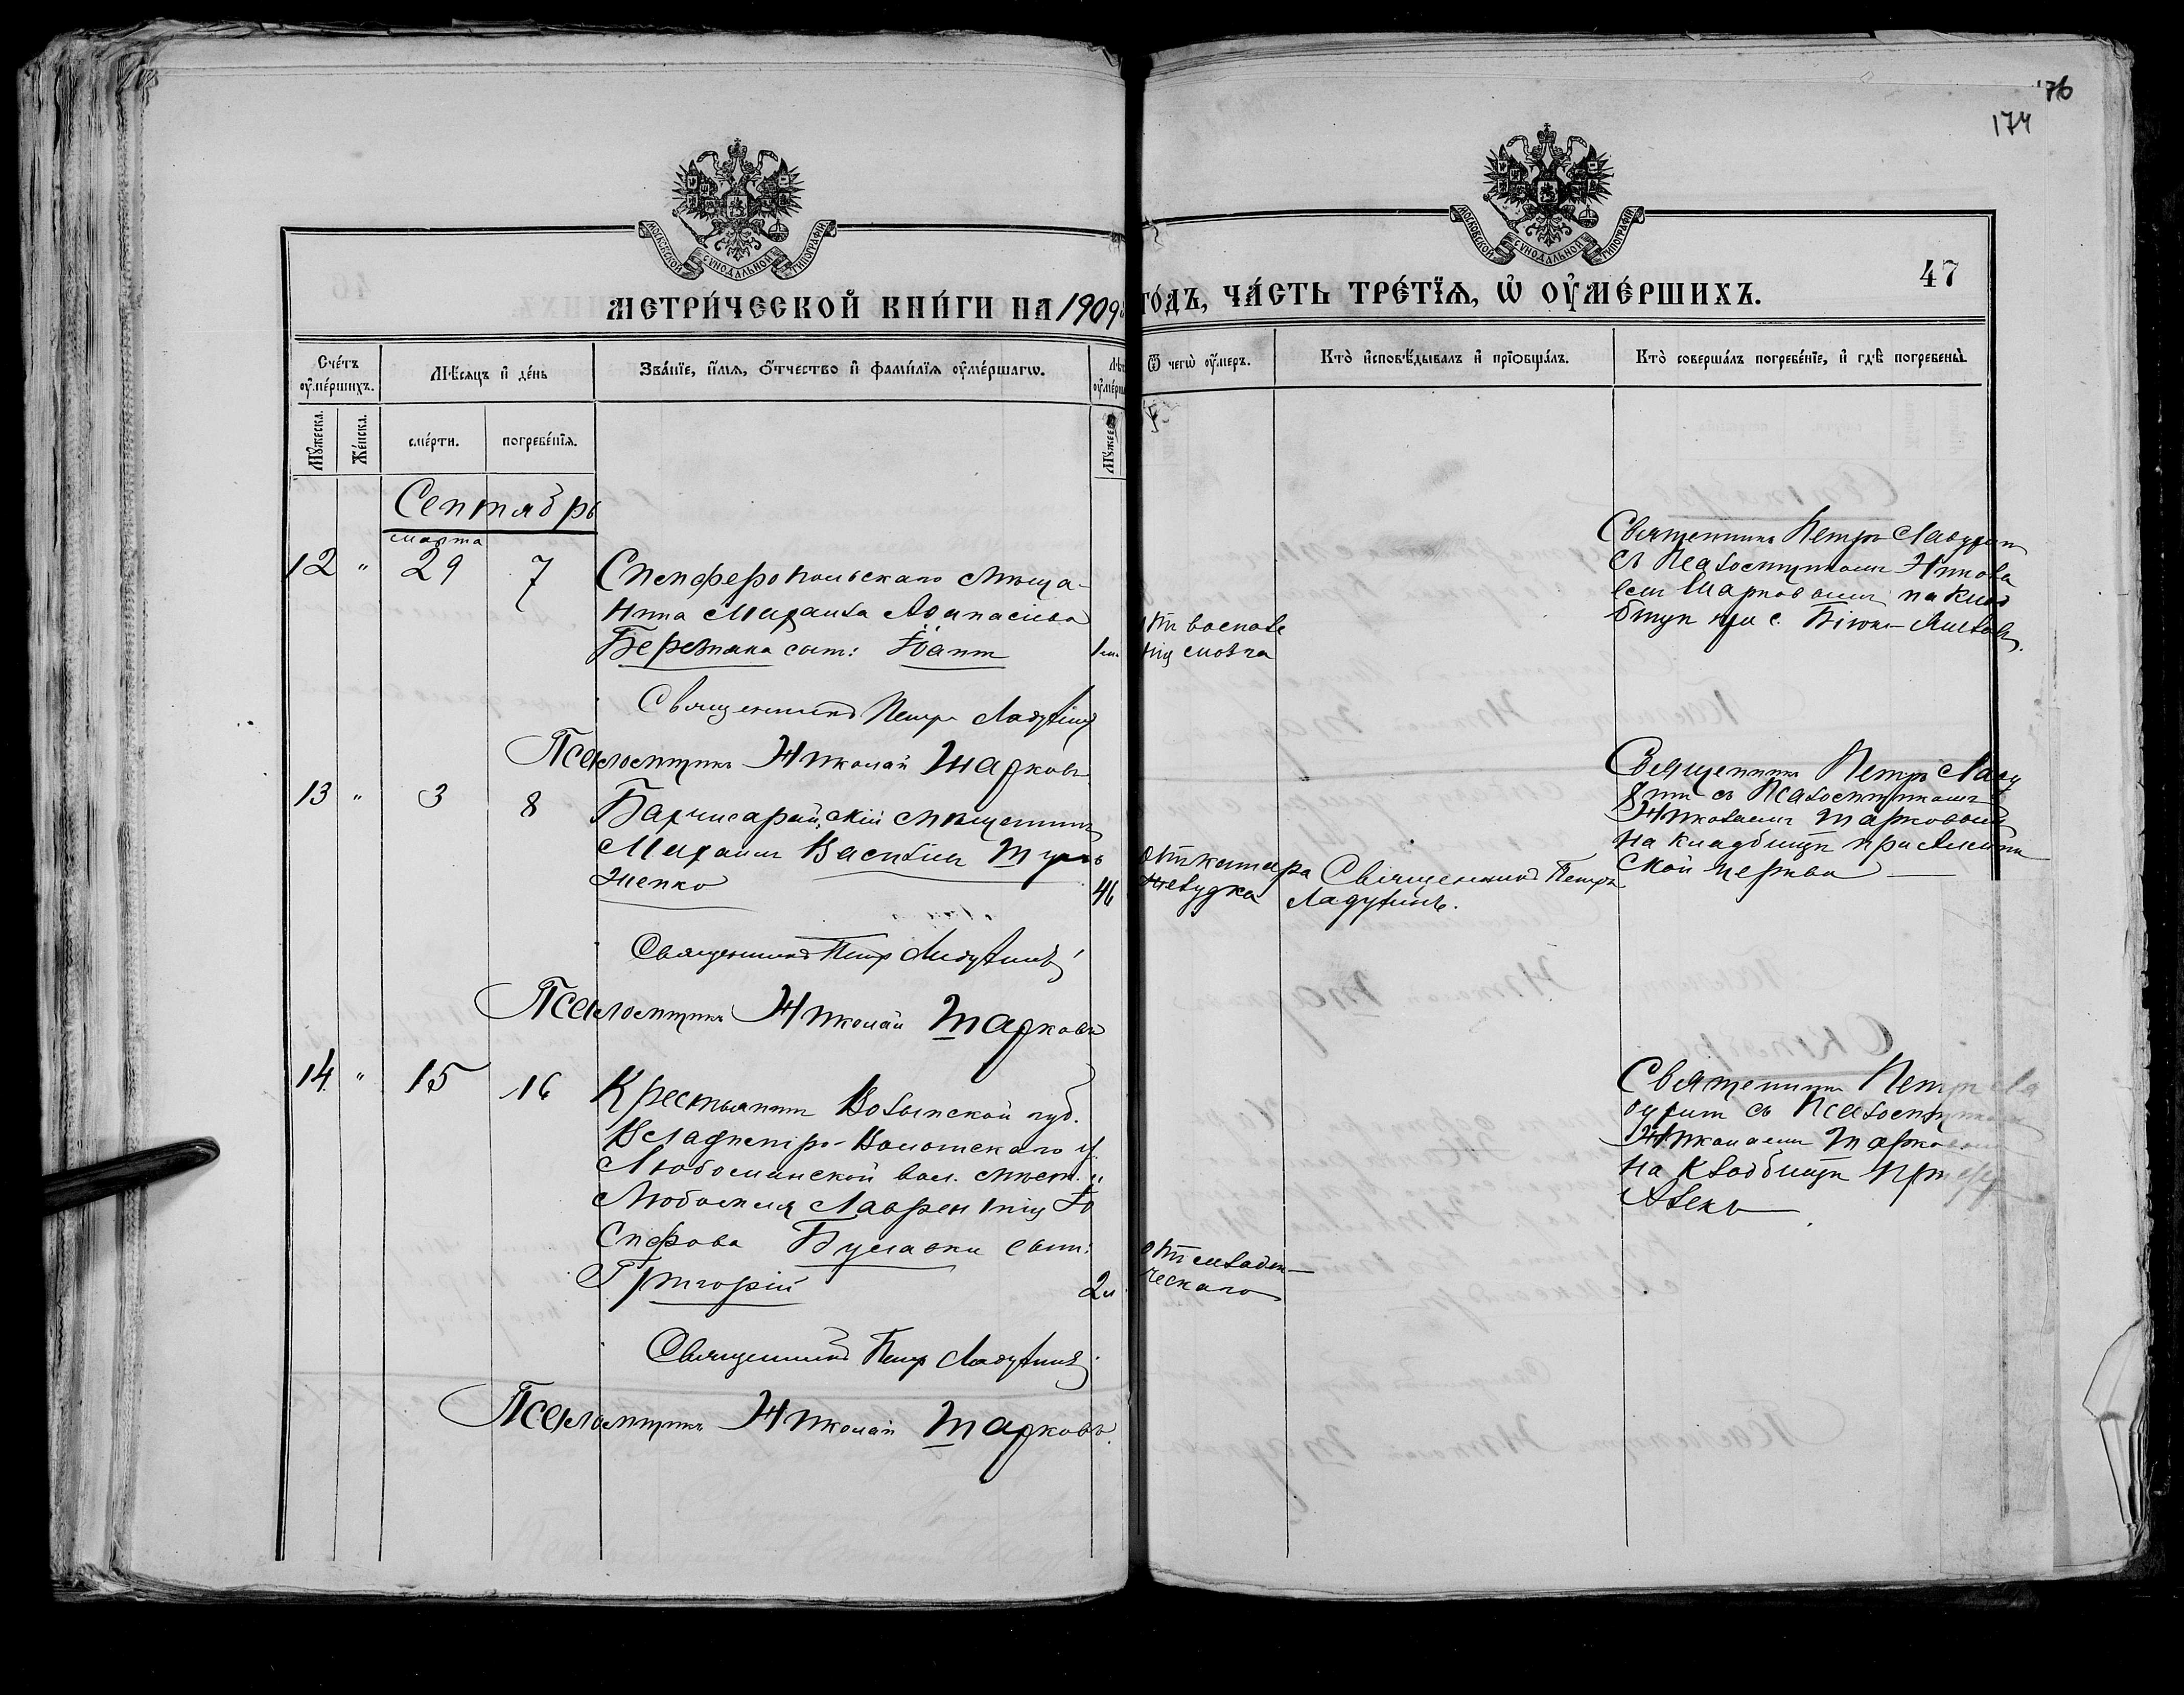 76
174
МОСКОВСКОЙ СѴНОДАЛЬНОЙ ТИПОГРАФІИ
МОСКОВСКОЙ СѴНОДАЛЬНОЙ ТИПОГРАФІИ
МЕТРИ́ЧЕСКОЙ КНИ́ГИ НА 1909й
ГО́ДЪ, ЧА́СТЬ ТРЕ́ТЇѦ, Ѡ҆ ОУ҆МЕ́РШИХЪ.
47
Сче́тъ оу҆ме́ршихъ.
Мѣ́сяцъ и҆ де́нь
Зва́нїе, и҆́мѧ, ѻ҆́тчество и҆ фами́лїѧ оу҆ме́ршагѡ.
Мꙋ́жеска.
Же́нска.
сме́рти.
погребе́нїѧ.
Ѿ чегѡ̀ оу҆́меръ.
Кто̀ и҆сповѣ́дывалъ и҆ прїѡбща́лъ.
Кто̀ соверша́лъ погребе́нїе, и҆ гдѣ̀ погребены̀.
Сентябрь
марта
12 " 29 7 Симферопольскаго мѣща-
нина Михаила Аѳанасіева
Бережнака сынъ: Іоаннъ
1 м.
отъ воспале
нія мозга
Священникъ Петръ Ладухин
съ Псаломщикомъ Никола
емъ Шарковымъ на клад
бищѣ при с. Біюкъ-
Священникъ Петръ Ладухинъ
Псаломщикъ Николай Шарковъ
13 " 3 8 Бахчисарайскій мѣщанинъ
Михаилъ Васильевъ
женко
46
отъ катара
желудка
Священникъ Петръ
Ладухинъ.
Священникъ Петръ Ладу
хинъ съ Псаломщикомъ
Николаемъ Шарковымъ
на кладбищѣ при
ской церкви
Священникъ Петръ Ладухинъ
Псаломщикъ Николай Шарковъ
14 " 15 16 Крестьянинъ Волынской губ.
Владимиръ-Волынскаго у.
Любомльской вол. мѣст.
Любомля Лаврентія Іо
сифова Буславки сынъ:
Григорій
2 м
отъ младен-
ческаго
Священникъ Петръ Ла
духинъ съ Псаломщикомъ
Николаемъ Шарковымъ
на кладбищѣ при дер.
Священникъ Петръ Ладухинъ
Псаломщикъ Николай Шарковъ.